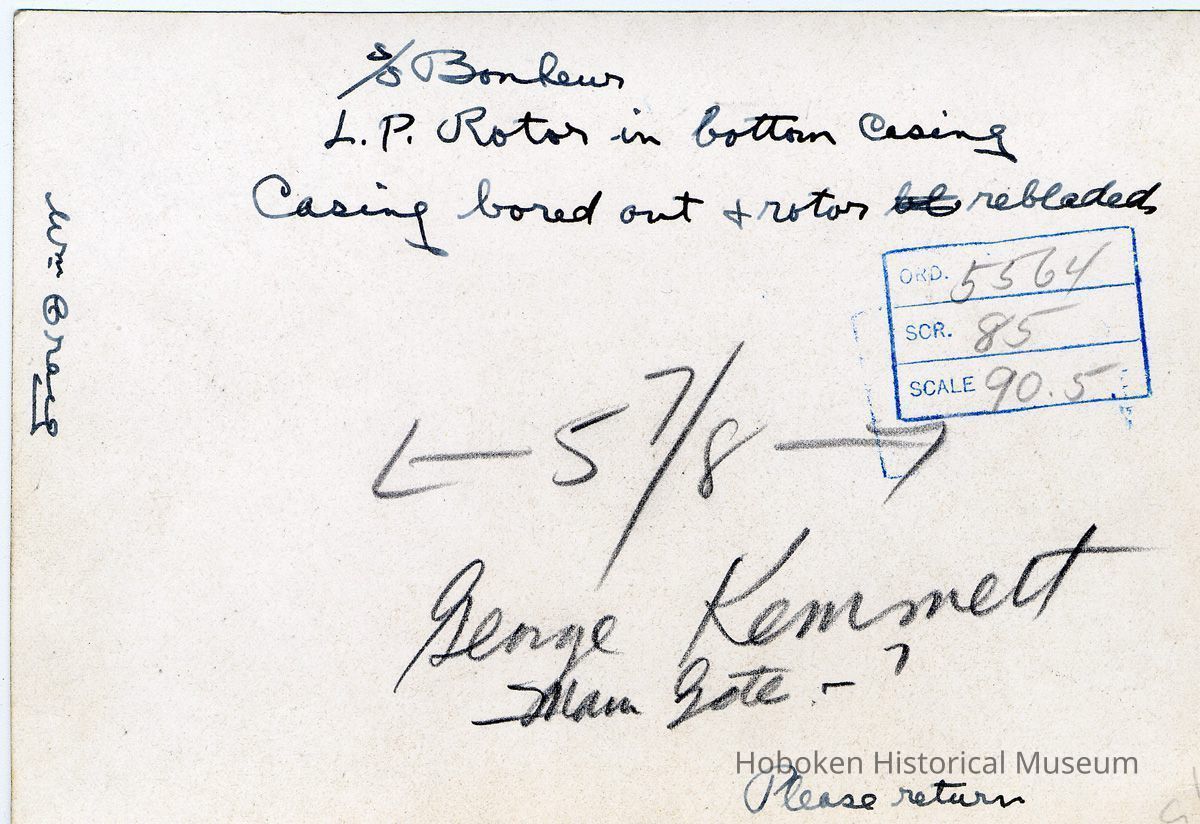 s/s Bonheur
L.P. Rotor in bottom Casing
Casing bored out & rotor rebladed
Wm Craig
ORD. 5564
SCR. 85
SCALE 90.5
← 5 7/8 →
George Kemmett
Main Gate. -
Hoboken Historical Museum
Please return